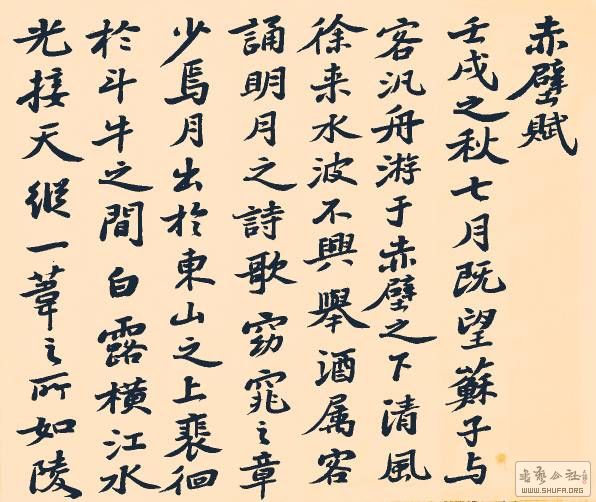 赤壁賦
壬戌之秋七月既望蘇子与
客汎舟游于赤壁之下清風
徐来水波不興舉酒属客
誦明月之詩歌窈窕之章
少焉月出於東山之上裴徊
於斗牛之間白露横江水
光接天縱一葦之所如陵
WWW.SHUFA.ORG